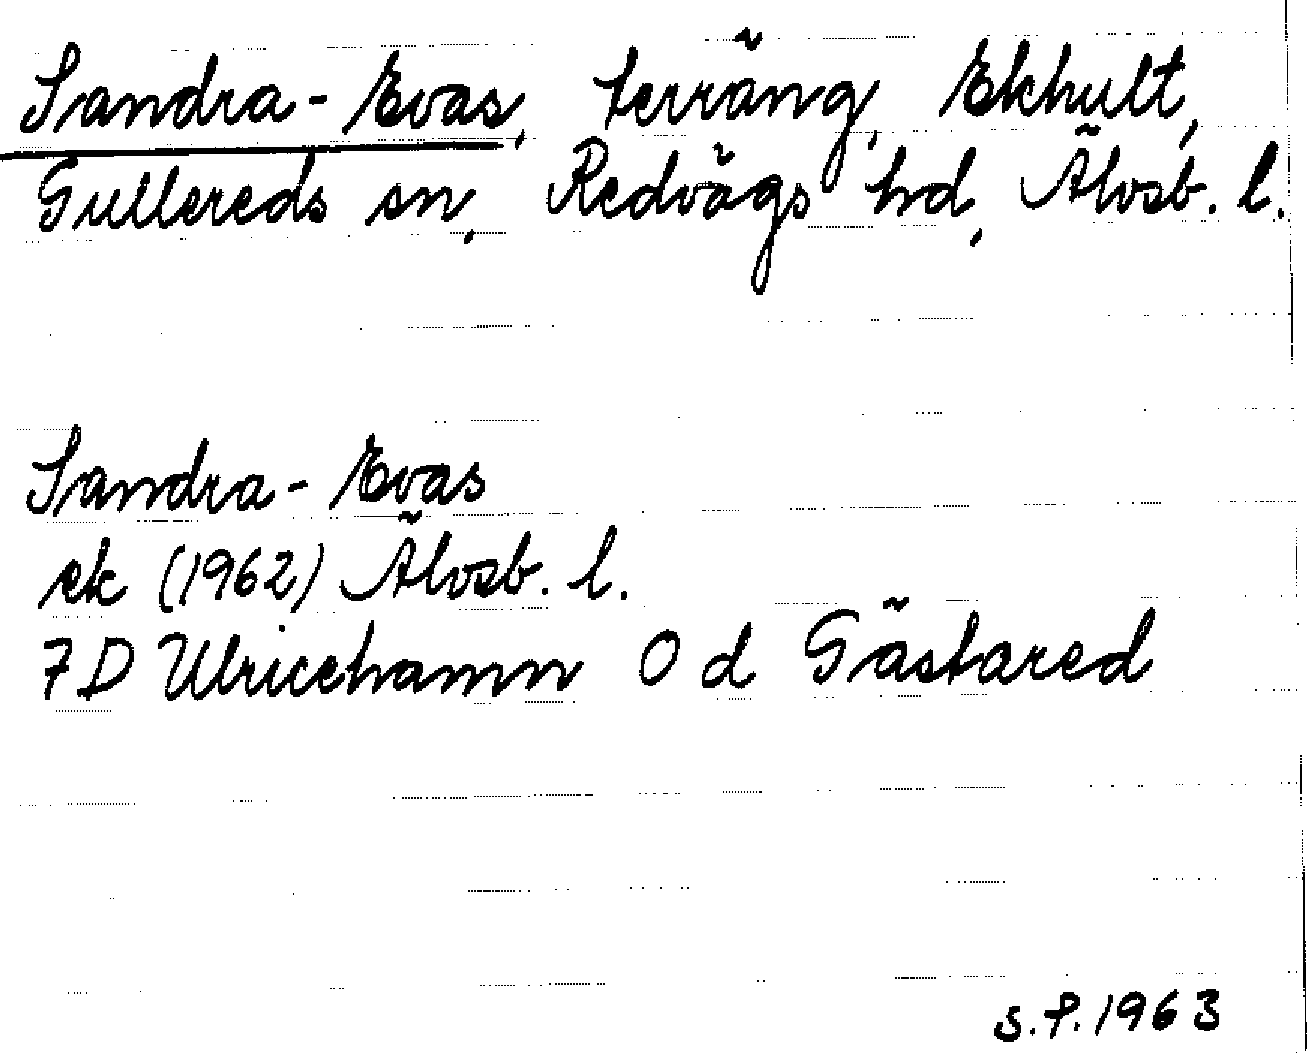 Sandra-Evas, terräng, Ekhult,
Gullereds sn, Redvägs hd, Älvsb. l.
Sandra-Evas
ek (1962) Älvsb. l.
7D Ulricehamn 0 d Gästared
S.P. 1963